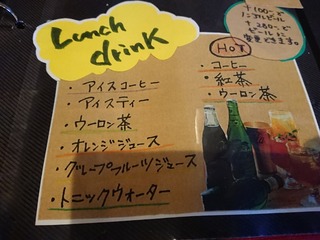 Lunch
drink
・アイスコーヒー
・アイスティー
・ウーロン茶
・オレンジジュース
・グレープフルーツジュース
・トニックウォーター
HOT
・コーヒー
・紅茶
・ウーロン茶
+100-
+250-で
ビールに
変更できます。